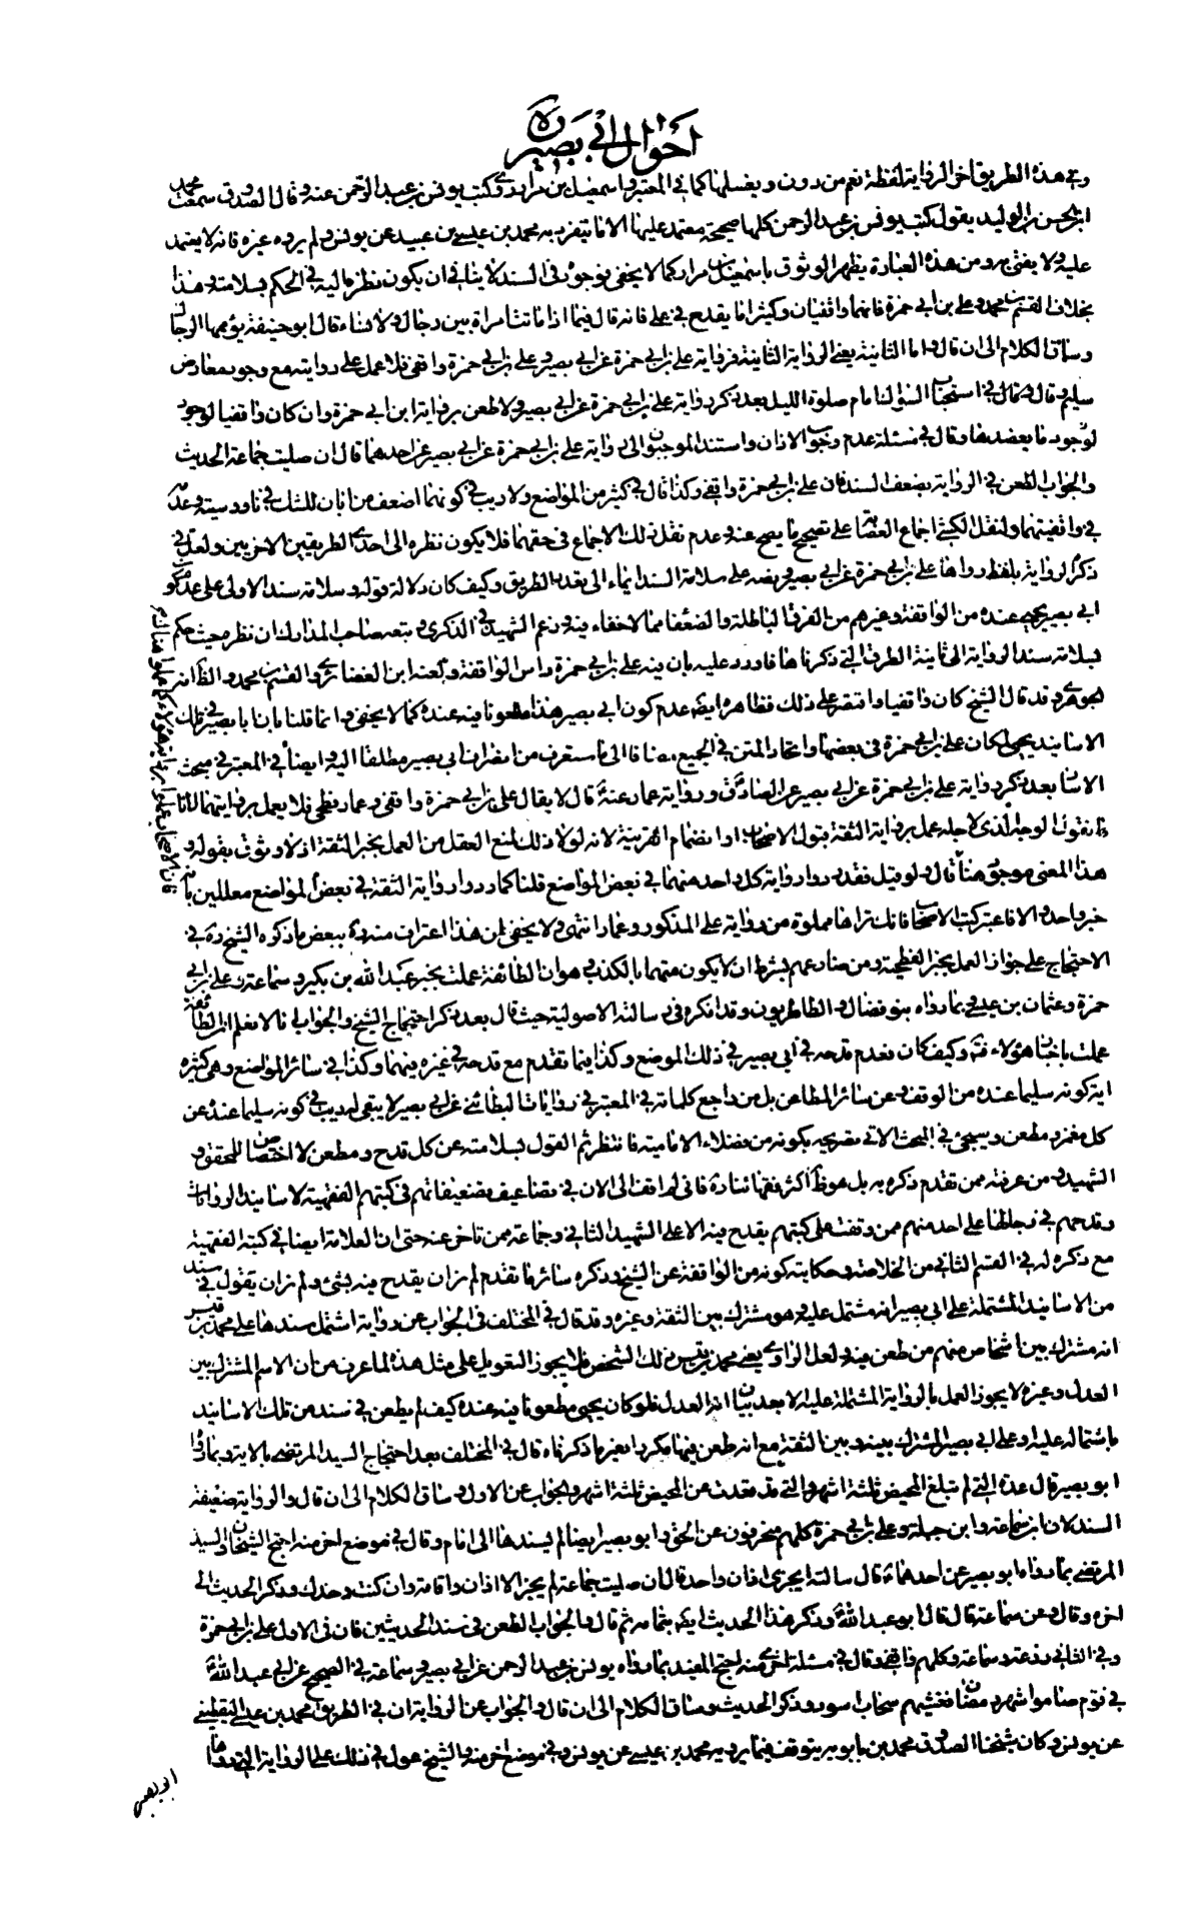 احوال ابي بصير
وفي هذا الطريق اخر الرواية لفظة نعم من دون ويغسلها كما في المعتبر واسمعيل بن مرار يروي كتب يونس بن عبد الرحمن عنه وقال الصدوق سمعت محمد
ابن الحسن بن الوليد يقول كتب يونس بن عبد الرحمن كلها صحيحة معتمد عليها الا ما يتفرد به محمد بن عيسى بن عبيد عن يونس ولم يروه غيره فانه لا يعتمد
عليه ولا يفتى به ومن هذه العبارة يظهر الوثوق باسمعيل بن مرار كما لا يخفى فوجوده في السند لا ينافي ان يكون نظره اليه في الحكم بسلامته وهذا
بخلاف القسم بن محمد وعلي بن ابي حمزة فانهما واقفيان وكثيرا ما يقدح في علي فانه قال فيما اذا ماتت امراة بين رجال ولا نساء قال ابو حنيفة يؤمها الرجال
وساق الكلام الى ان قال واما الثانية يعني الرواية الثانية فرواية علي بن ابي حمزة عن ابي بصير وعلي بن ابي حمزة واقفي فلا عمل على روايته مع وجود معارض
سليم وقال في استحباب السؤال امام صلوة الليل بعد ذكر رواية علي بن ابي حمزة عن ابي بصير ولا طعن برواية ابن ابي حمزة وان كان واقفيا لوجود
لوجود ما يعضدها وقال في مسئلة عدم وجوب الاذان واستند الموجبون الى رواية علي بن ابي حمزة عن ابي بصير عن احدهما قال ان صليت جماعة الحديث
والجواب الطعن في الرواية بضعف السند فان علي بن ابي حمزة واقفي وكذا قال في كثير من المواضع ولا ريب في كونهما اضعف من ابان للشك في ناووسيته وعدمه
في واقفيتهما ولنقل الكشي اجماع العصابة على تصحيح ما يصح عنه وعدم نقل ذلك الاجماع في حقهما فلا يكون نظره الى احدى الطريقين الاخريين ولعل في
ذكر الرواية بلفظ رواها علي بن ابي حمزة عن ابي بصير ونصه على سلامة السند ايماء الى تعدد الطريق وكيف كان دلالة قوله وسلامة سند الاولى على عدم كون
ابي بصير يحيى عنده من الواقفة وغيرهم من الفرق الباطلة والضعفاء مما لا خفاء فيه وزعم الشهيد في الذكرى وتبعه صاحب المدارك ان نظره حيث حكم
بسلامة سند الرواية الى ثانية الطرق التي ذكرناها فاورد عليه بان فيه علي بن ابي حمزة راس الواقفة ولعنه ابن الغضائري والقسم بن محمد والظاهر انه
الجوهري وقد قال الشيخ كان واقفيا واقتصر على ذلك فظاهره ايضا عدم كون ابي بصير هذا مطعونا فيه عنده كما لا يخفى وانما قلنا بان ابا بصير في تلك
الاسانيد يحيى لمكان علي بن ابي حمزة في بعضها واتحاد المتن في الجميع مضافا الى ما ستعرف من انصراف ابي بصير مطلقا اليه وايضا في المعتبر في مبحث
الاسآر بعد ذكر رواية علي بن ابي حمزة عن ابي بصير عن الصادق ورواية عمار عنه قال لا يقال علي بن ابي حمزة واقفي وعمار فطحي فلا يعمل بروايتهما لانا
نقول الوجه الذي لاجله عمل برواية الثقة قبول الاصحاب او انضمام القرينة لانه لولا ذلك لمنع العقل من العمل بخبر الثقة اذ لا وثوق بقوله و
هذا المعنى موجود هنا قال ولو قيل فقد ردوا رواية كل واحد منهما في بعض المواضع قلنا كما ردوا رواية الثقة في بعض المواضع معللين بانه
خبر واحد والا فاعتبر كتب الاصحاب فانك تراها مملوة من رواية علي المذكور وعمار انتهى ولا يخفى ان هذا اعتراف منه ره ببعض ما ذكره الشيخ ره في
الاحتجاج على جواز العمل بخبر الفطحية ومن ضارعهم بشرط ان لا يكون متهما بالكذب وهو ان الطائفة عملت بخبر عبد الله بن بكير وسماعة وعلي بن ابي
حمزة وعثمان بن عيسى وبما رواه بنو فضال والطاطريون وقد انكره في رسالته الاصولية حيث قال بعد ذكر احتجاج الشيخ والجواب انا لا نعلم ان الطائفة
عملت باخبار هؤلاء وكيف كان فعدم قدحه في ابي بصير في ذلك الموضع وكذا فيما تقدم مع قدحه في غيره فيهما وكذا في سائر المواضع وهي كثيرة
اية كونه سليما عنده من الوقف وعن سائر المطاعن بل من راجع كلماته في المعتبر في روايات البطائني عن ابي بصير لا يبقى له ريب في كونه سليما عنده عن
كل مغمز ومطعن وسيجيء في البحث الاتي تصريحه بكونه من فضلاء الامامية فانتظر ثم القول بسلامته عن كل قدح ومطعن لا اختصاص للمحقق و
الشهيد ومن عرفته ممن تقدم ذكره به بل هو ظاهر اكثر فقهائنا ره فاني لم اقف الى الان في تضاعيف تصنيفاتهم في كتبهم الفقهية لاسانيد الروايات
وقدحهم في رجالها على احد منهم ممن وقفت على كتبهم يقدح فيه الا على الشهيد الثاني وجماعة ممن تاخر عنه حتى ان العلامة ايضا في كتبه الفقهية
مع ذكره له في القسم الثاني من الخلاصة وحكايته كونه من الواقفة عن الشيخ وذكره سائر ما تقدم لم ار ان يقدح فيه بشئ ولم ار ان يقول في سند
من الاسانيد المشتملة على ابي بصير انه مشتمل عليه وهو مشترك بين الثقة وغيره وقد قال في المختلف في الجواب عن رواية اشتمل سندها على محمد بن قيس
انه مشترك بين اشخاص منهم من طعن فيه ولعل الراوي يعني محمد بن قيس ذلك الشخص فلا يجوز التعويل على مثل هذه لما عرف من ان الاسم المشترك بين
العدل وغيره لا يجوز العمل بالرواية المشتملة عليه الا بعد بيان انه العدل فلو كان يحيى مطعونا فيه عنده كيف لم يطعن في سند من تلك الاسانيد
باشتماله عليه وعلى ابي بصير المشترك بينه وبين الثقة مع انه طعن فيها مكررا بغير ما ذكر فانه قال في المختلف بعد احتجاج السيد المرتضى بالاية وبما رواه
ابو بصير قال عدة التي لم تبلغ المحيض ثلثة اشهر والتي قد قعدت عن المحيض ثلثة اشهر والجواب عن الاول وساق الكلام الى ان قال والرواية ضعيفة
السند لان ابن سماعة وابن جبلة وعلي بن ابي حمزة كلهم منحرفون عن الحق وابو بصير ايضا لم يسندها الى امام وقال في موضع اخر منه احتج الشيخان والسيد
المرتضى بما رواه ابو بصير عن احدهما قال سالته ايجزي اذان واحد قال ان صليت جماعة لم يجز الا اذان واقامة وان كنت وحدك وذكر الحديث الى
اخره وقال وعن سماعة قال قال ابو عبد الله وذكر هذا الحديث ايضا بتمامه ثم قال والجواب الطعن في سند الحديثين فان في الاول علي بن ابي حمزة
وفي الثاني زرعة وسماعة وكلهم واقفية وقال في مسئلة اخرى منه احتج المفيد بما رواه يونس بن عبد الرحمن عن ابي بصير وسماعة في الصحيح عن ابي عبد الله
في قوم صاموا شهر رمضان فغشيهم سحاب اسود وذكر الحديث وساق الكلام الى ان قال والجواب عن الرواية ان في الطريق محمد بن عيسى اليقطيني
عن يونس وكان شيخنا الصدوق محمد بن بابويه يتوقف فيما يرويه محمد بن عيسى عن يونس وفي موضع اخر منه والشيخ عول في ذلك على الرواية التي رواها
ابو بصير